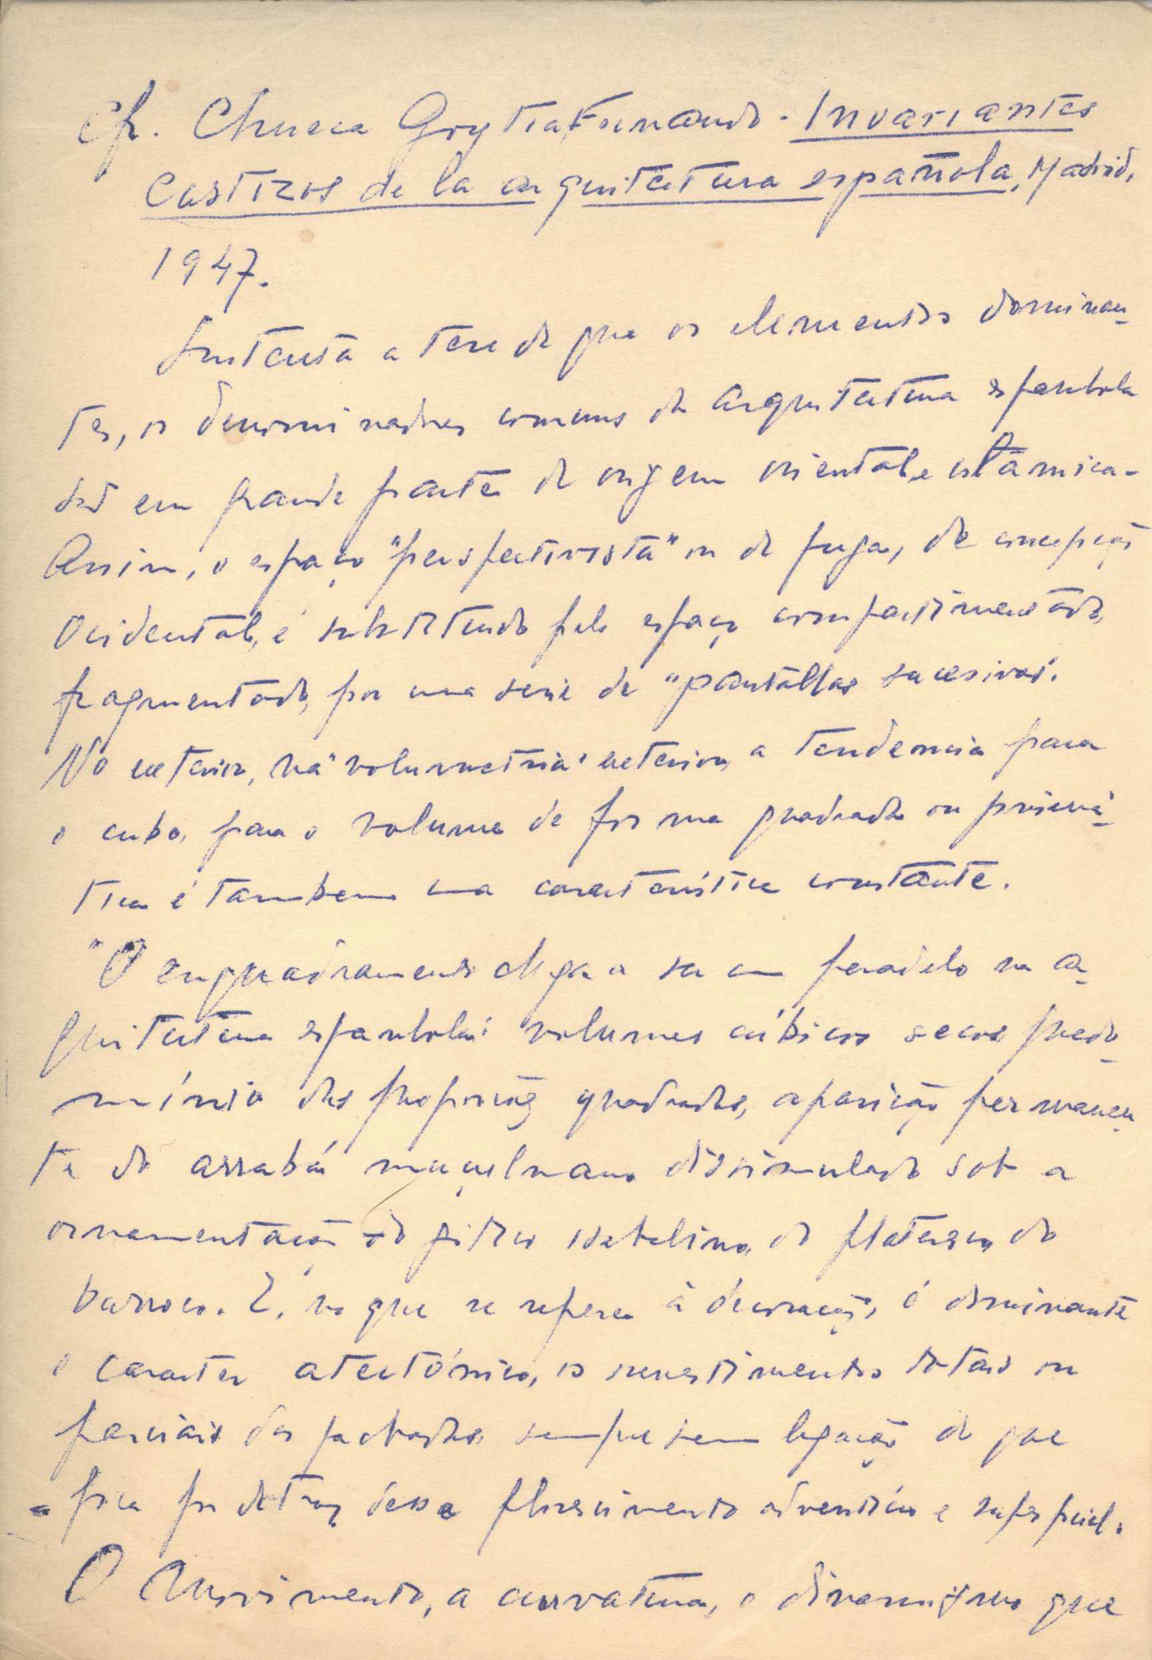 Cfr. Chueca Goytia Fernando - Invariantes
Castizos de la arquitectura española, Madrid,
1947.
Sustenta a tese de que os elementos dominan-
tes, os denominadores comuns da arquitectura espanhola
são em grande parte de origem oriental e islâmica.
Assim, o espaço "perspectivista" ou de fuga, de concepção
Ocidental, é substituido pelo espaço compartimentado,
fragmentado, por uma serie de "pantallas sucesivas".
No exterior, na "volumetria" exterior, a tendencia para
o cubo, para o volume de forma quadrada ou prismá-
tica é tambem uma caracteristica constante.
"O enquadramento chega a ser um pesadelo na ar-
quitectura espanhola: volumes cúbicos secos, predo-
mínio das proporções quadradas, aparição permanen-
te do arrabá muçulmano dissimulado sob a
ornamentação do gótico isabelino, do plateresco, do
barroco. E, no que se refere à decoração, é dominante
o caracter atectónico, os revestimentos totais ou
parciais das fachadas, sempre sem ligação do que
fica por detraz desse florescimento adventício e superficial.
O Movimento, a curvatura, o dinamismo que